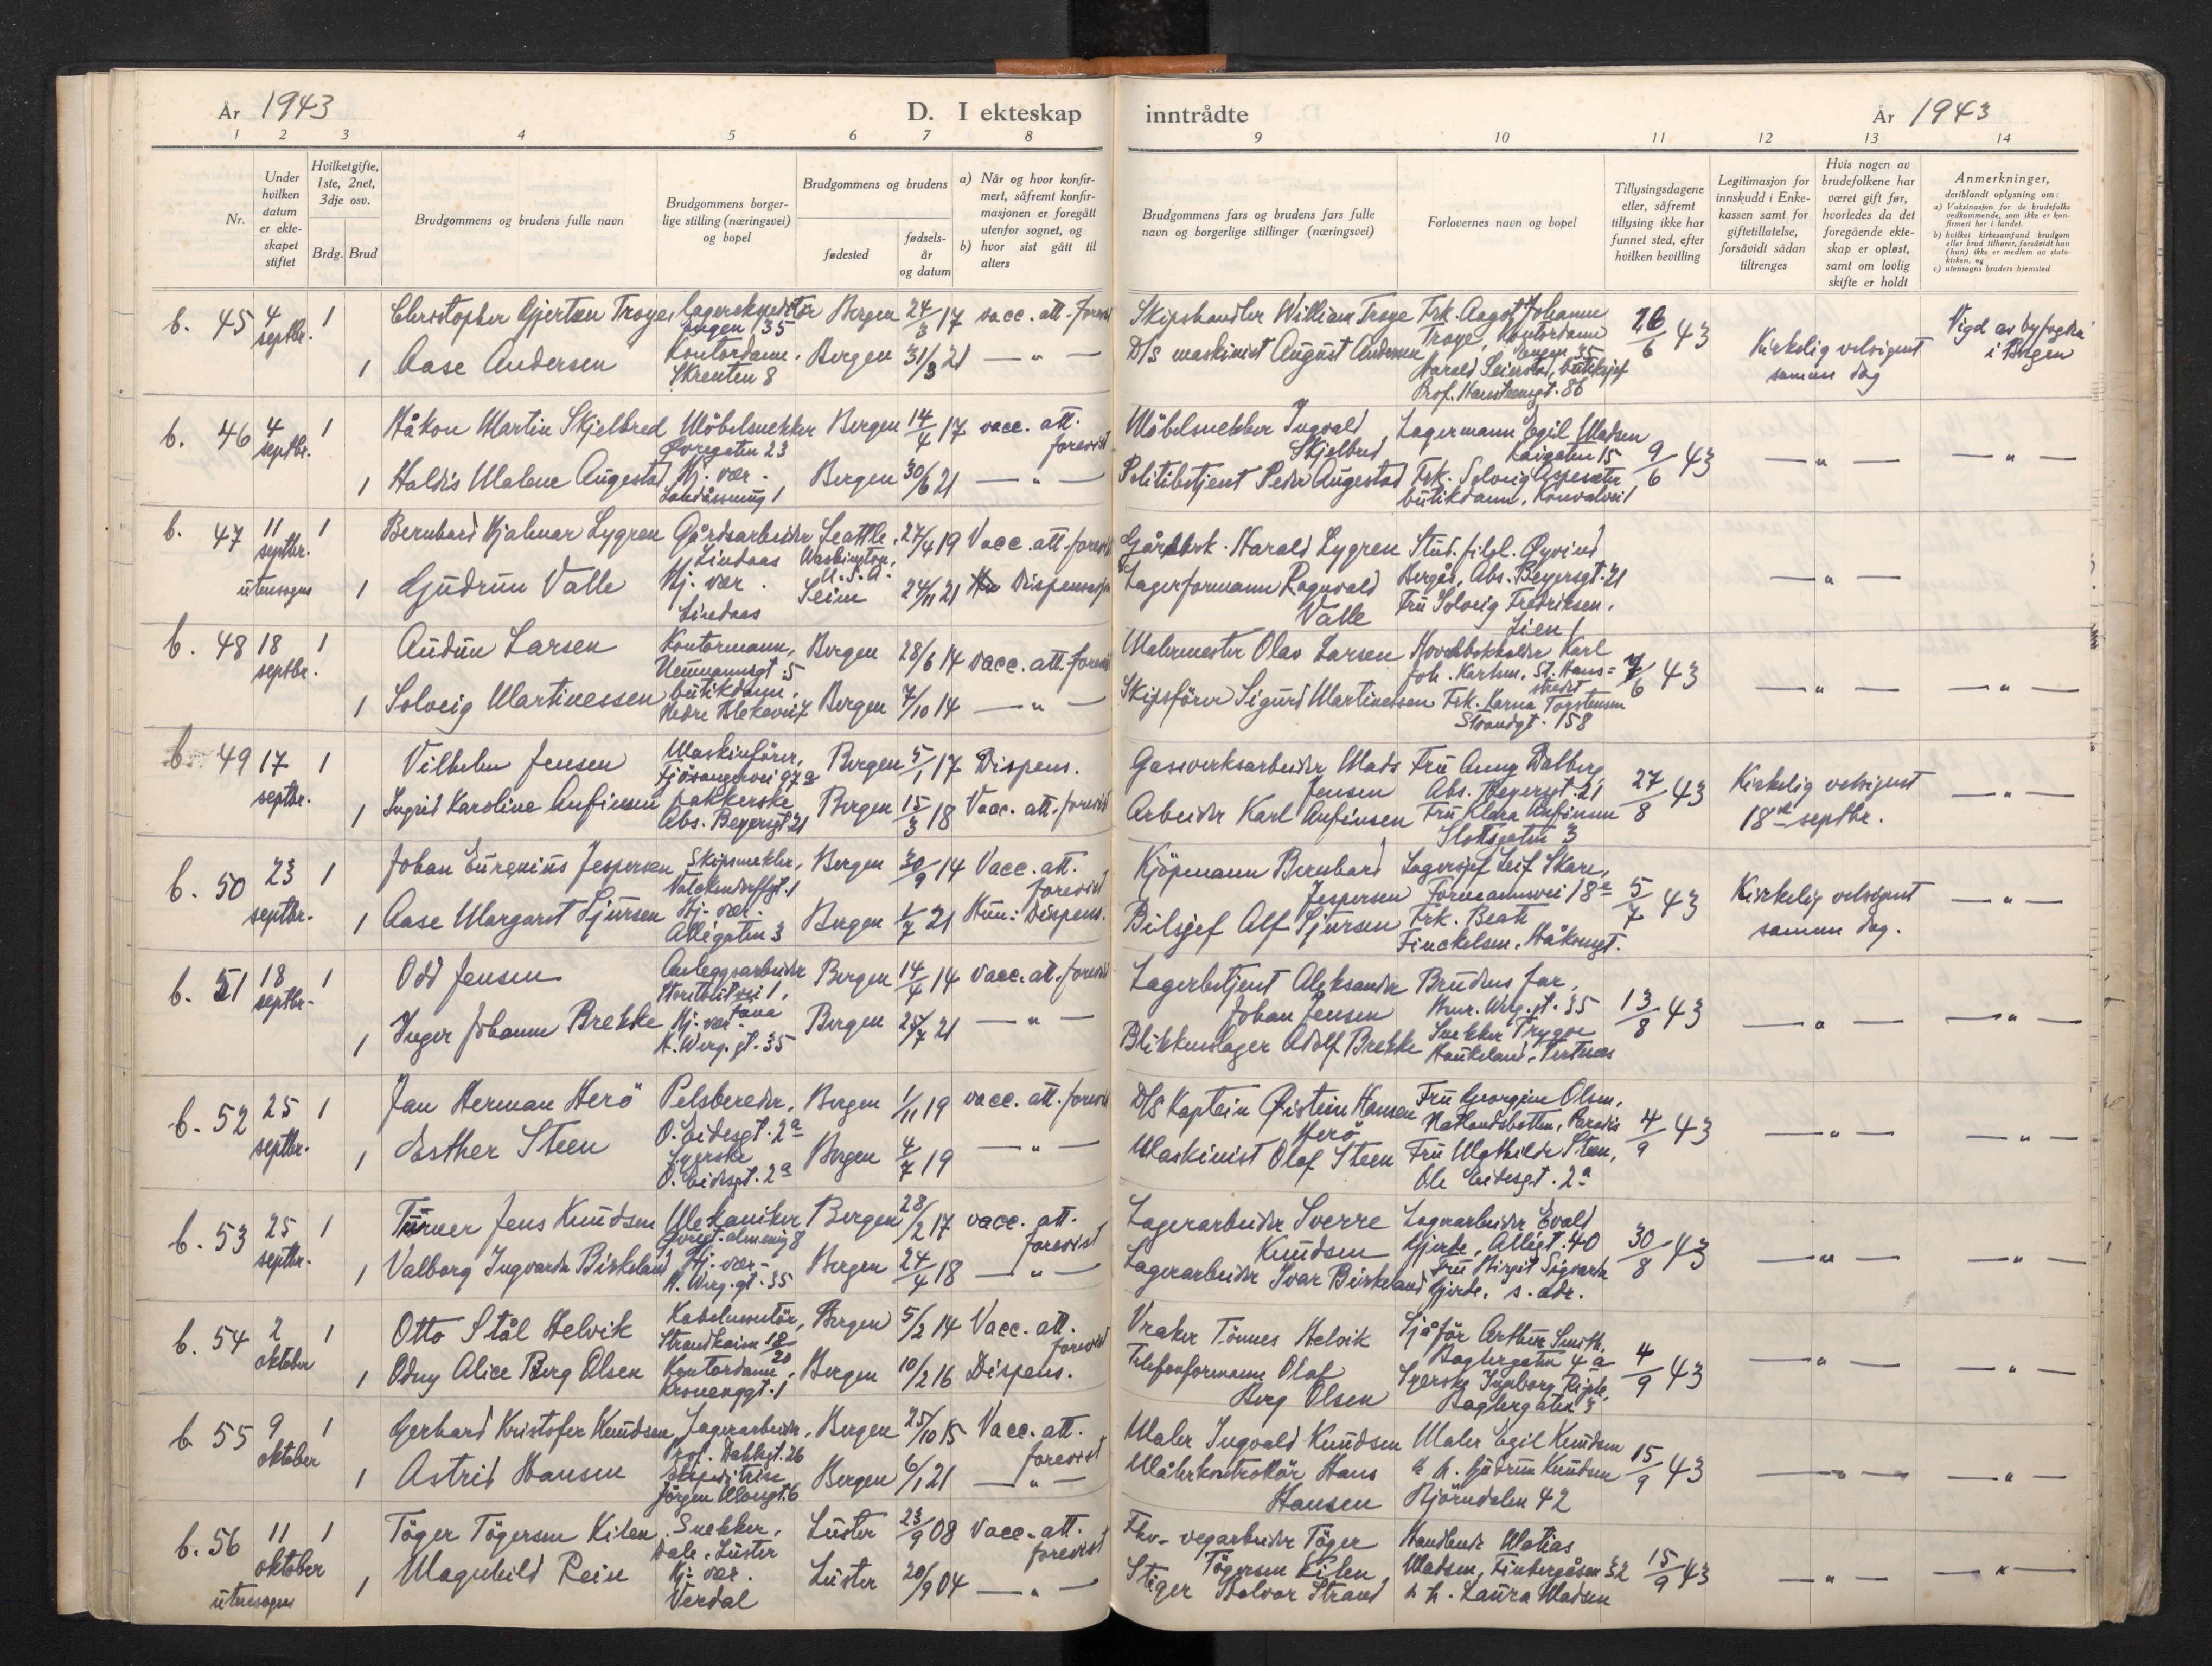 År 1943
D. I ekteskap
inntrådte
År 1943
1 2 3 4 5 6 7 8
9 10 11 12 13 14
Nr.
Under hvilken datum er ekteskapet stiftet
Hvilket gifte, 1ste, 2net, 3dje osv.
Brdg. Brud
Brudgommens og brudens fulle navn
Brudgommens borgerlige stilling (næringsvei) og bopel
Brudgommens og brudens
fødested
fødselsår og datum
a) Når og hvor konfirmert, såfremt konfirmasjonen er foregått utenfor sognet, og
b) hvor sist gått til alters
Brudgommens fars og brudens fars fulle navn og borgerlige stillinger (næringsvei)
Forlovernes navn og bopel
Tillysingsdagene eller, såfremt tillysing ikke har funnet sted, efter hvilken bevilling
Legitimasjon for innskudd i Enkekassen samt for giftetillatelse, forsåvidt sådan tiltrenges
Hvis nogen av brudefolkene har været gift før, hvorledes da det foregående ekteskap er opløst, samt om lovlig skifte er holdt
Anmerkninger,
deriblandt oplysning om:
a) Vaksinasjon for de brudefolks vedkommende, som ikke er konfirmert her i landet.
b) hvilket kirkesamfund brudgom eller brud tilhører, forsåvidt han (hun) ikke er medlem av statskirken, og
c) utensogns bruders hjemsted
b. 45 4 septbr. 1 Christopher Gjertsen Troye, Lagerekspeditør Engen 35 Bergen 24/3 17 vacc. att. forevist
Skipshandler William Troye Frk. Aagot Johanne Troye, Kontordame Engen 35 26/6 43 Kirkelig velsignet samme dag Vigd av byfogden i Bergen
1 Aase Andersen Kontordame, Skrenten 8 Bergen 31/3 21 — " —
D/S maskinist August Andersen Harald Seimstad, butikksjef Prof. Hansteensgt. 86
b. 46 4 septbr. 1 Håkon Martin Skjelbred Möbelsnekker Øvregaten 23 Bergen 14/4 17 vacc. att. forevist
Möbelsnekker Ingvald Skjelbred Lagermann Egil Madsen Kaigaten 15 9/6 43 — " — — " —
1 Haldis Malene Augestad Hj. vær. Landåssving 1 Bergen 30/6 21 — " —
Politibetjent Peder Augestad Frk. Solveig Aspesæter butikdame, Konvalvei 1
b. 47 11 septbr. utensogns 1 Bernhard Hjalmar Lygren Gårdsarbeider Lindaas Seattle, Washington, U.S.A. 27/4 19 Vacc. att. forevist
Gårdbrk. Harald Lygren Stud. filol. Øyvind Bergås, Abs. Beyersgt. 21 — " —
1 Gudrun Valle Hj. vær. Lindaas Seim 24/11 21 Dispensasjon
Lagerformann Ragnvald Valle Fru Solveig Fredriksen, Lien 1
b. 48 18 septbr. 1 Audun Larsen Kontormann, Neumannsgt. 5 Bergen 28/6 14 vacc. att. forevist
Malermester Olav Larsen Hovedbokholder Karl Joh. Karlsen, St. Hans=stredet 7/6 43 — " — — " —
1 Solveig Martinessen butikdame, Nedre Blekevei 7 Bergen 7/10 14 — " —
Skipsfører Sigurd Martinessen Frk. Karna Torstensen Strandgt. 158
b. 49 17 septbr. 1 Vilhelm Jensen Maskinfører, Fjösangervei 97a Bergen 5/1 17 Dispens.
Gassverksarbeider Mads Jensen Fru Anny Dalberg, Abs. Beyersgt. 21 27/8 43 Kirkelig velsignet 18de septbr. — " —
1 Ingrid Karoline Anfinsen pakkerske Abs. Beyersgt 21 Bergen 15/3 18 Vacc. att. forevist
Arbeider Karl Anfinsen Fru Klara Anfinsen Slottsgaten 3
b. 50 23 septbr. 1 Johan Eugenius Jespersen Skipsmekler, Valckendorffgt. 1 Bergen 30/9 14 Vacc. att. forevist
Kjöpmann Bernhard Jespersen Lagersjef Leif Skare, Formannsvei 18e 5/7 43 Kirkelig velsignet samme dag. — " —
1 Aase Margaret Sjursen Hj. vær. Allégaten 3 Bergen 1/7 21 Hun: Dispens.
Bilsjef Alf Sjursen Frk. Beate Finckelsen, Håkonsgt.
b. 51 18 septbr. 1 Odd Jensen Anleggsarbeider Storetveitvei 1, Fana Bergen 14/4 14 vacc. att. forevist
Lagerbetjent Aleksander Johan Jensen Brudens far, Hmr. Werg. gt. 35 13/8 43 — " — — " —
1 Inger Johanne Brekke Hj. vær. H. Werg. gt. 35 Bergen 25/7 21 — " —
Blikkenslager Adolf Brekke Snekker Trygve Haukeland, Tertnæs
b. 52 25 septbr. 1 Jan Herman Herö Pelsbereder, O. Eidesgt. 2a Bergen 1/11 19 vacc. att. forevist
D/S Kaptein Øistein Hansen Herö Fru Georgine Olsen, Natlandsbotten, Paradis 4/9 43 — " — — " —
1 Esther Steen Syerske O. Eidesgt. 2a Bergen 4/7 19 — " —
Maskinist Olaf Steen Fru Mathilde Steen, Ole Eidesgt. 2a
b. 53 25 septbr. 1 Turner Jens Knudsen Mekaniker Øvregt.almening 8 Bergen 28/2 17 vacc. att. forevist
Lagerarbeider Sverre Knudsen Lagerarbeider Evald Gjerde, Allégt. 40 30/8 43 — " — — " —
1 Valborg Ingvarda Birkeland Hj. vær. H. Werg. gt. 35 Bergen 24/4 18 — " —
Lagerarbeider Ivar Birkeland Fru Birgit Sigvarda Gjerde, s. adr.
b. 54 2 oktober 1 Otto Stål Helvik Kabelmontör, Strandkaien 18/20 Bergen 5/2 14 Vacc. att. forevist
Vraker Tönnes Helvik Sjåför Arthur Smith, Baglergaten 4a 4/9 43 — " — — " —
1 Odny Alice Berg Olsen Kontordame, Kroneng gt. 1 Bergen 10/2 16 Dispens.
Telefonformann Olaf Berg Olsen Syerske Ingeborg Riple, Baglergaten 3
b. 55 9 oktober 1 Gerhard Kristofer Knudsen Lagerarbeider, Prof. Dahlsgt. 26 Bergen 25/10 15 Vacc. att. forevist
Maler Ingvald Knudsen Maler Egil Knudsen 15/9 43 — " — — " —
1 Astrid Hansen ekspeditrise Jörgen Moesgt. 6 Bergen 6/1 21 — " —
Målerkontrollör Hans Hansen & h. Gudrun Knudsen Björndalen 42
b. 56 11 oktober utensogns 1 Töger Tögersen Kilen Snekker, Dale, Luster Luster 23/9 08 vacc. att. forevist
Fhv. vegarbeider Töger Tögersen Kilen Handlende Matias Madsen, Finbergåsen 32 15/9 43 — " — — " —
1 Magnhild Rein Hj. vær. Verdal Luster 20/9 04 — " —
Stiger Halvor Strand & h. Laura Madsen